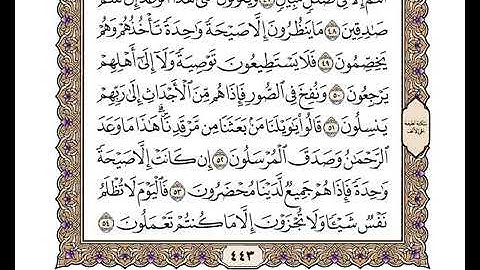 صَٰدِقِينَ ﴿٤٨﴾ مَا يَنظُرُونَ إِلَّا صَيْحَةً وَٰحِدَةً تَأْخُذُهُمْ وَهُمْ
يَخِصِّمُونَ ﴿٤٩﴾ فَلَا يَسْتَطِيعُونَ تَوْصِيَةً وَلَآ إِلَىٰٓ أَهْلِهِمْ
يَرْجِعُونَ ﴿٥٠﴾ وَنُفِخَ فِى ٱلصُّورِ فَإِذَا هُم مِّنَ ٱلْأَجْدَاثِ إِلَىٰ رَبِّهِمْ
يَنسِلُونَ ﴿٥١﴾ قَالُوا۟ يَٰوَيْلَنَا مَنۢ بَعَثَنَا مِن مَّرْقَدِنَا ۜ ۗ هَٰذَا مَا وَعَدَ
ٱلرَّحْمَٰنُ وَصَدَقَ ٱلْمُرْسَلُونَ ﴿٥٢﴾ إِن كَانَتْ إِلَّا صَيْحَةً
وَٰحِدَةً فَإِذَا هُمْ جَمِيعٌ لَّدَيْنَا مُحْضَرُونَ ﴿٥٣﴾ فَٱلْيَوْمَ لَا تُظْلَمُ
نَفْسٌ شَيْـًٔا وَلَا تُجْزَوْنَ إِلَّا مَا كُنتُمْ تَعْمَلُونَ ﴿٥٤﴾
٤٤٣